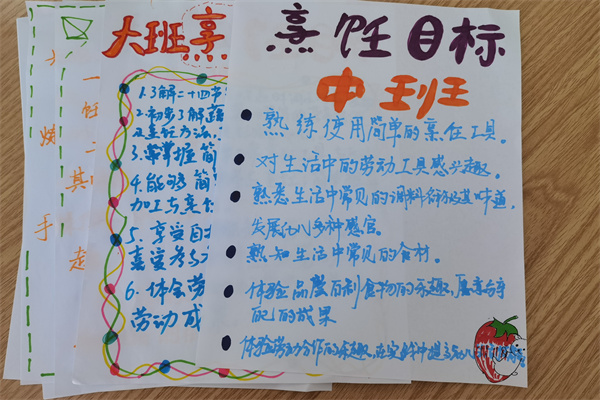 烹饪目标
中班
熟练使用简单的烹饪工具。
对生活中的劳动工具感兴趣。
熟悉生活中常见的调料名称及其味道,
发展幼儿多种感官。
熟知生活中常见的食材。
体验品尝自制食物的乐趣,愿意分享
自己的成果
体验劳动合作的乐趣,在实践中
大班烹
1.了解二十四节
2.初步了解蔬
及烹饪方法,
3.掌握简
4.能够简
加工与烹饪
5.享受自
喜爱参与
6.体会劳
劳动成
一
饪
二
其
走
手